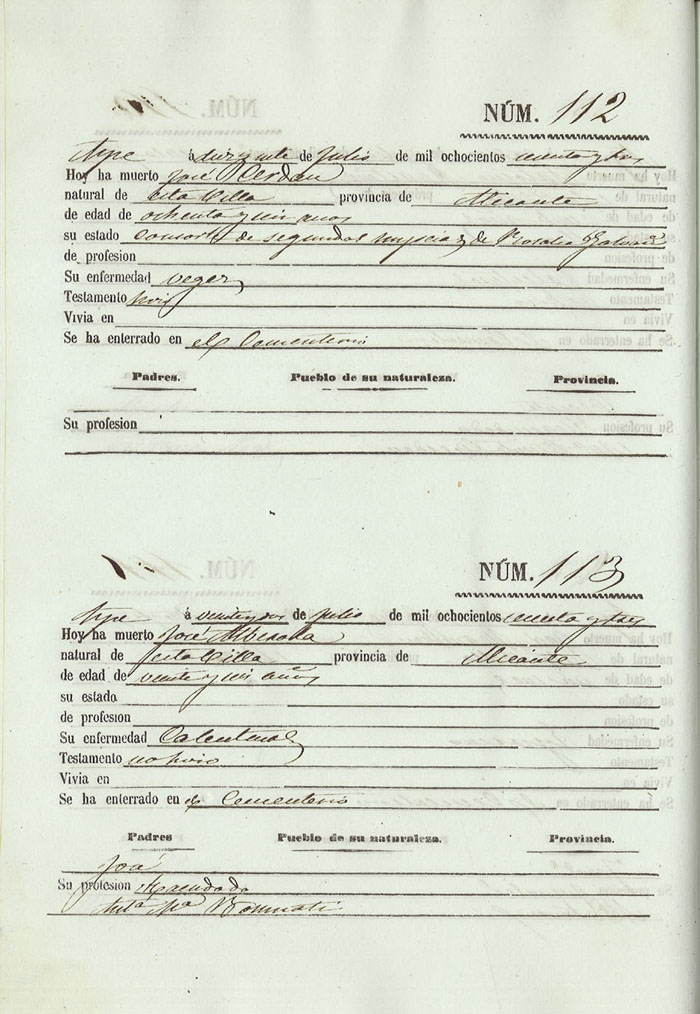 NÚM. 112
Aspe á de Julio de mil ochocientos
Hoy ha muerto José Cerdan
natural de esta Villa provincia de Alicante
de edad de ochenta y un años
su estado consorte de segundas de Rosalia
de profesion
Su enfermedad vegez
Testamento hizo
Vivia en
Se ha enterrado en el Cementerio
Padres. Pueblo de su naturaleza. Provincia.
Su profesion
NÚM. 113
Aspe á veinte y dos de Julio de mil ochocientos
Hoy ha muerto José
natural de esta Villa provincia de Alicante
de edad de veinte y seis años
su estado
de profesion
Su enfermedad Calenturas
Testamento no hizo
Vivia en
Se ha enterrado en el Cementerio
Padres Pueblo de su naturaleza. Provincia.
José
Su profesion
Mª